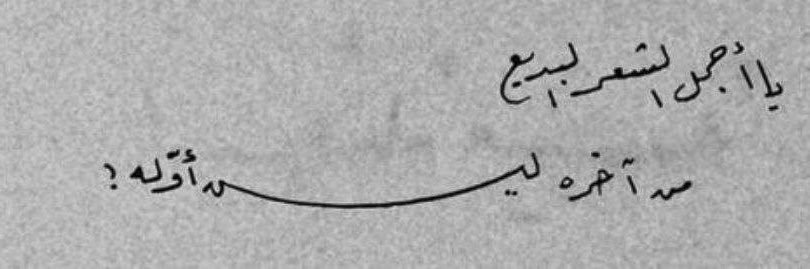 يا أجمل الشعر البديع
من آخره ليس أوّله ؟